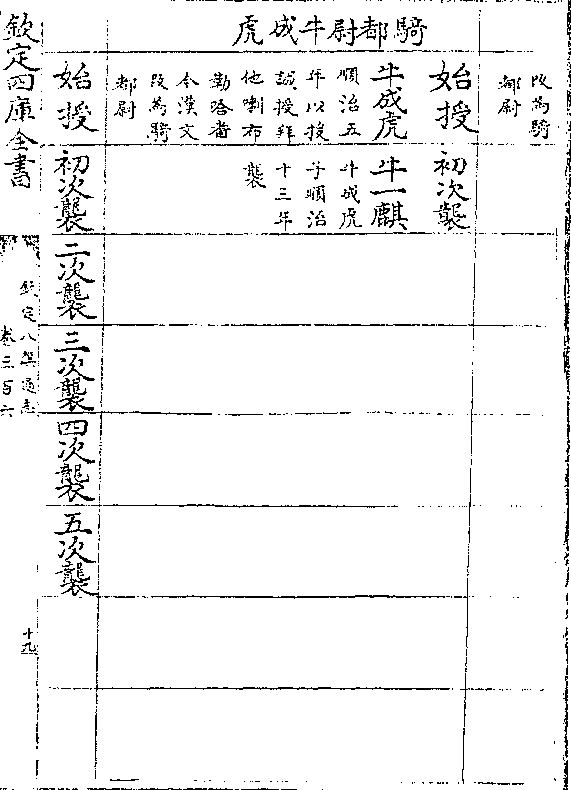 改為騎
都尉
騎都尉牛成虎
始授
初次襲
牛成虎
順治五
年以投
誠授拜
他喇布
勒哈番
今漢文
改為騎
都尉
牛一麒
牛成虎
子順治
十三年
襲
始授
初次襲
二次襲
三次襲
四次襲
五次襲
欽定四庫全書
欽定八旗通志
卷三百六
十九